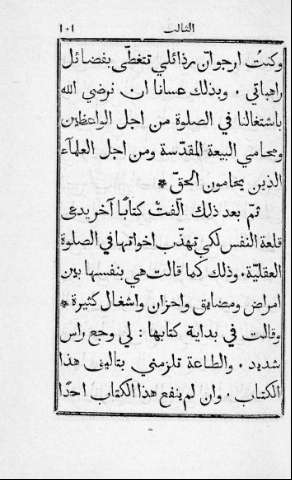 الثالث ١٠١
وكنتُ ارجو انّ رذائلي تتغطّى بفضائل
راهباتي . وبذلك عسانا ان نرضي الله
باشتغالنا في الصلوة من اجل الواعظين
ومحامي البيعة المقدّسة ومن اجل العلماء
الذين يحامون الحقّ *
ثمّ بعد ذلك الّفتْ كتابًا آخر يدعى
قلعة النفس لكي تهذّب اخواتها في الصلوة
العقليّة . وذلك كما قالت هي بنفسها بين
امراض ومضايق واحزان واشغال كثيرة *
وقالت في بداية كتابها : لي وجع راس
شديد . والطاعة تلزمني بتاليف هذا
الكتاب . وان لم ينفع هذا الكتاب احدًا